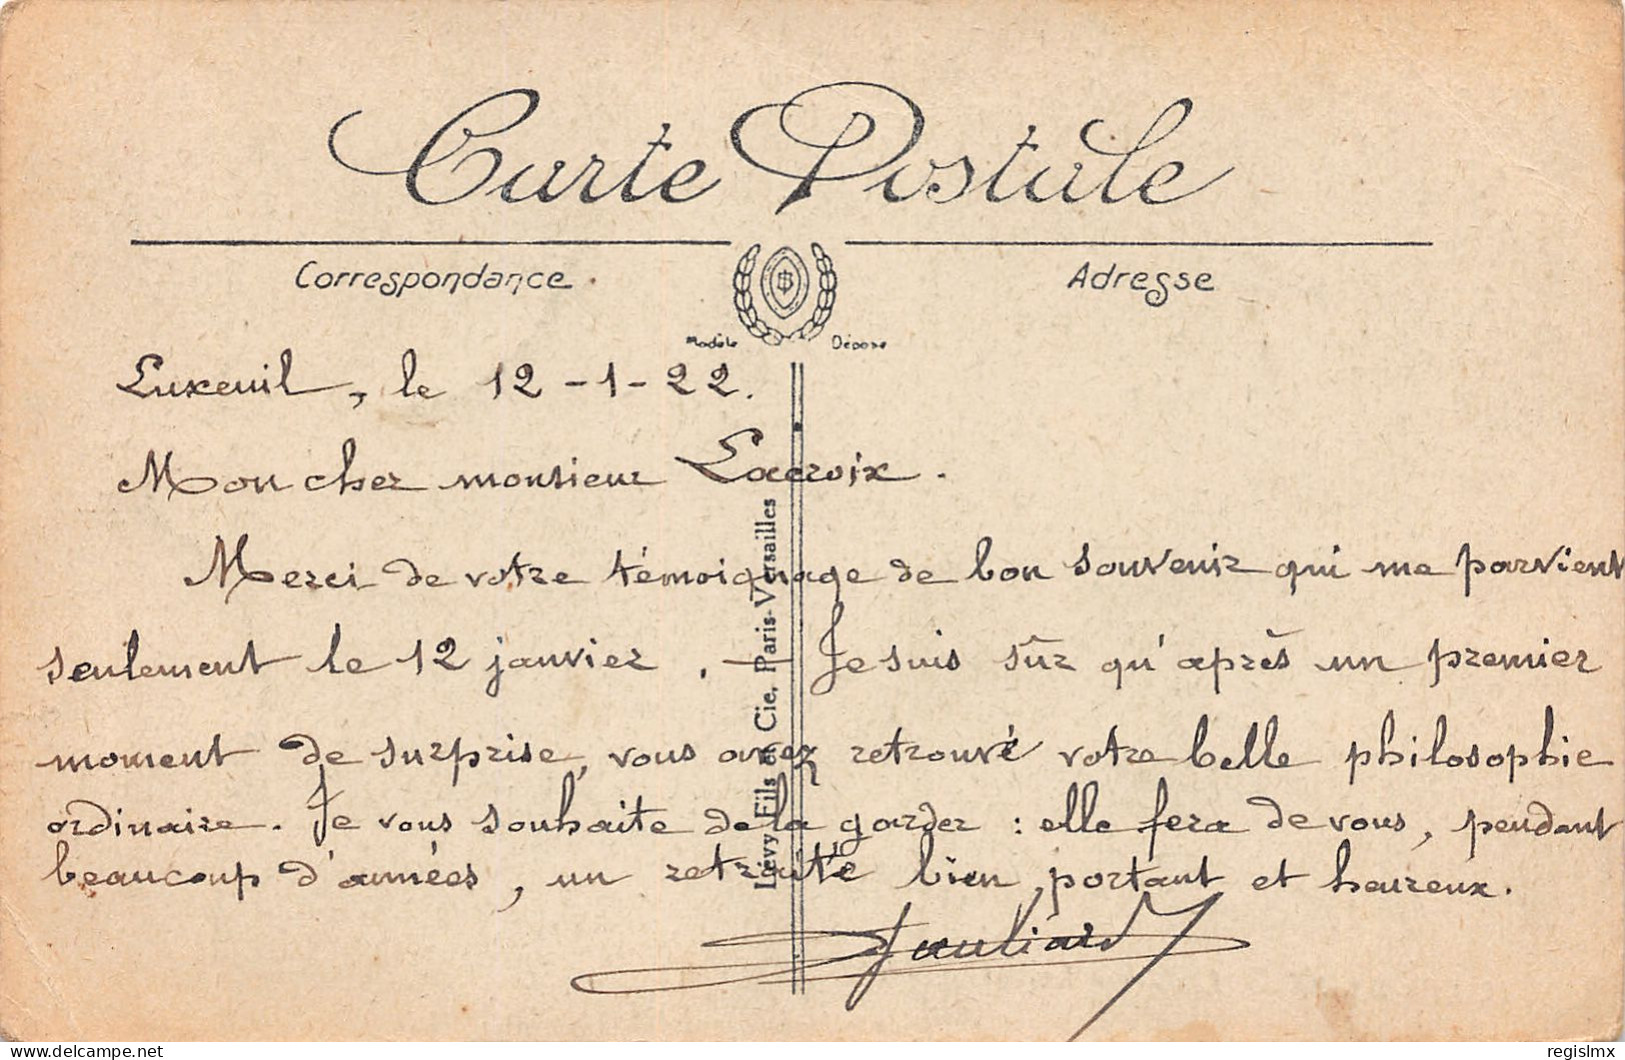 Carte Postale
Correspondance
Adresse
Modèle Déposé
Luxeuil, le 12-1-22.
Mon cher monsieur Lacroix.
Merci de votre témoignage de bon souvenir qui me parvient
seulement le 12 janvier. — Je suis sûr qu'après un premier
moment de surprise, vous avez retrouvé votre belle philosophie
ordinaire. Je vous souhaite de la garder : elle fera de vous, pendant
beaucoup d'années, un retraité bien portant et heureux.
Lévy Fils et Cie, Paris-Versailles
delcampe.net
regislmx